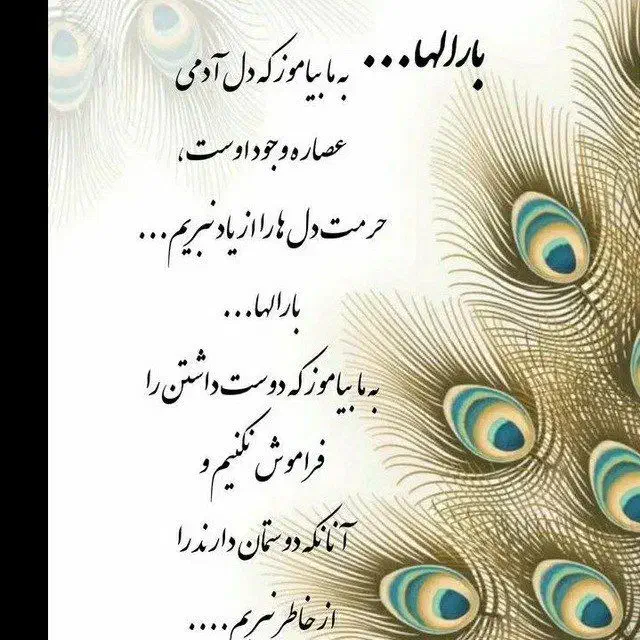 بارالها...
به ما بیاموز که دل آدمی
عصاره وجود اوست،
حرمت دل ها را از یاد نبریم...
بارالها...
به ما بیاموز که دوست داشتن را
فراموش نکنیم و
آنانکه دوستمان دارند را
از خاطر نبریم....